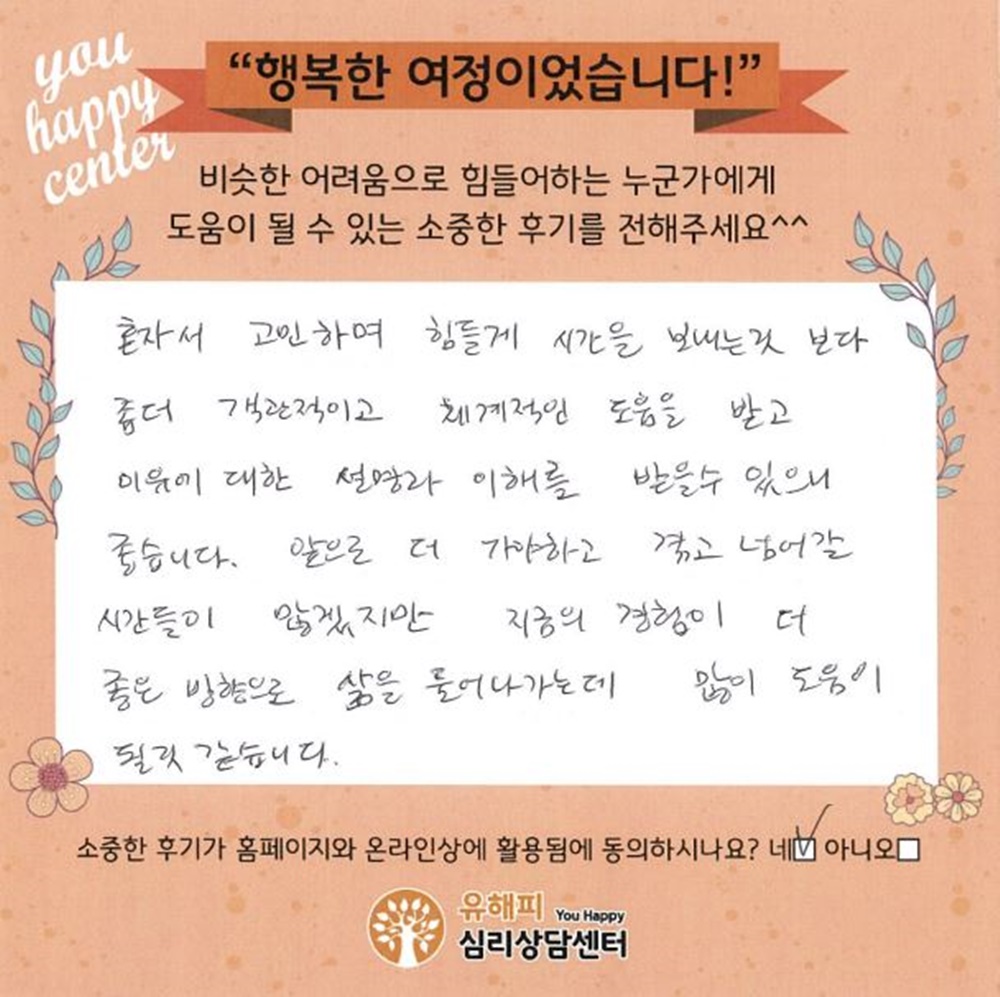 you
happy
center
“행복한 여정이었습니다!”
비슷한 어려움으로 힘들어하는 누군가에게
도움이 될 수 있는 소중한 후기를 전해주세요^^
혼자서 고민하며 힘들게 시간을 보내는것 보다
좀더 객관적이고 체계적인 도움을 받고
이유에 대한 설명과 이해를 받을수 있으니
좋습니다. 앞으로 더 가야하고 겪고 넘어갈
시간들이 많겠지만 지금의 경험이 더
좋은 방향으로 삶을 풀어나가는데 많이 도움이
될것 같습니다.
소중한 후기가 홈페이지와 온라인상에 활용됨에 동의하시나요? 네☑ 아니오☐
유해피 You Happy
심리상담센터